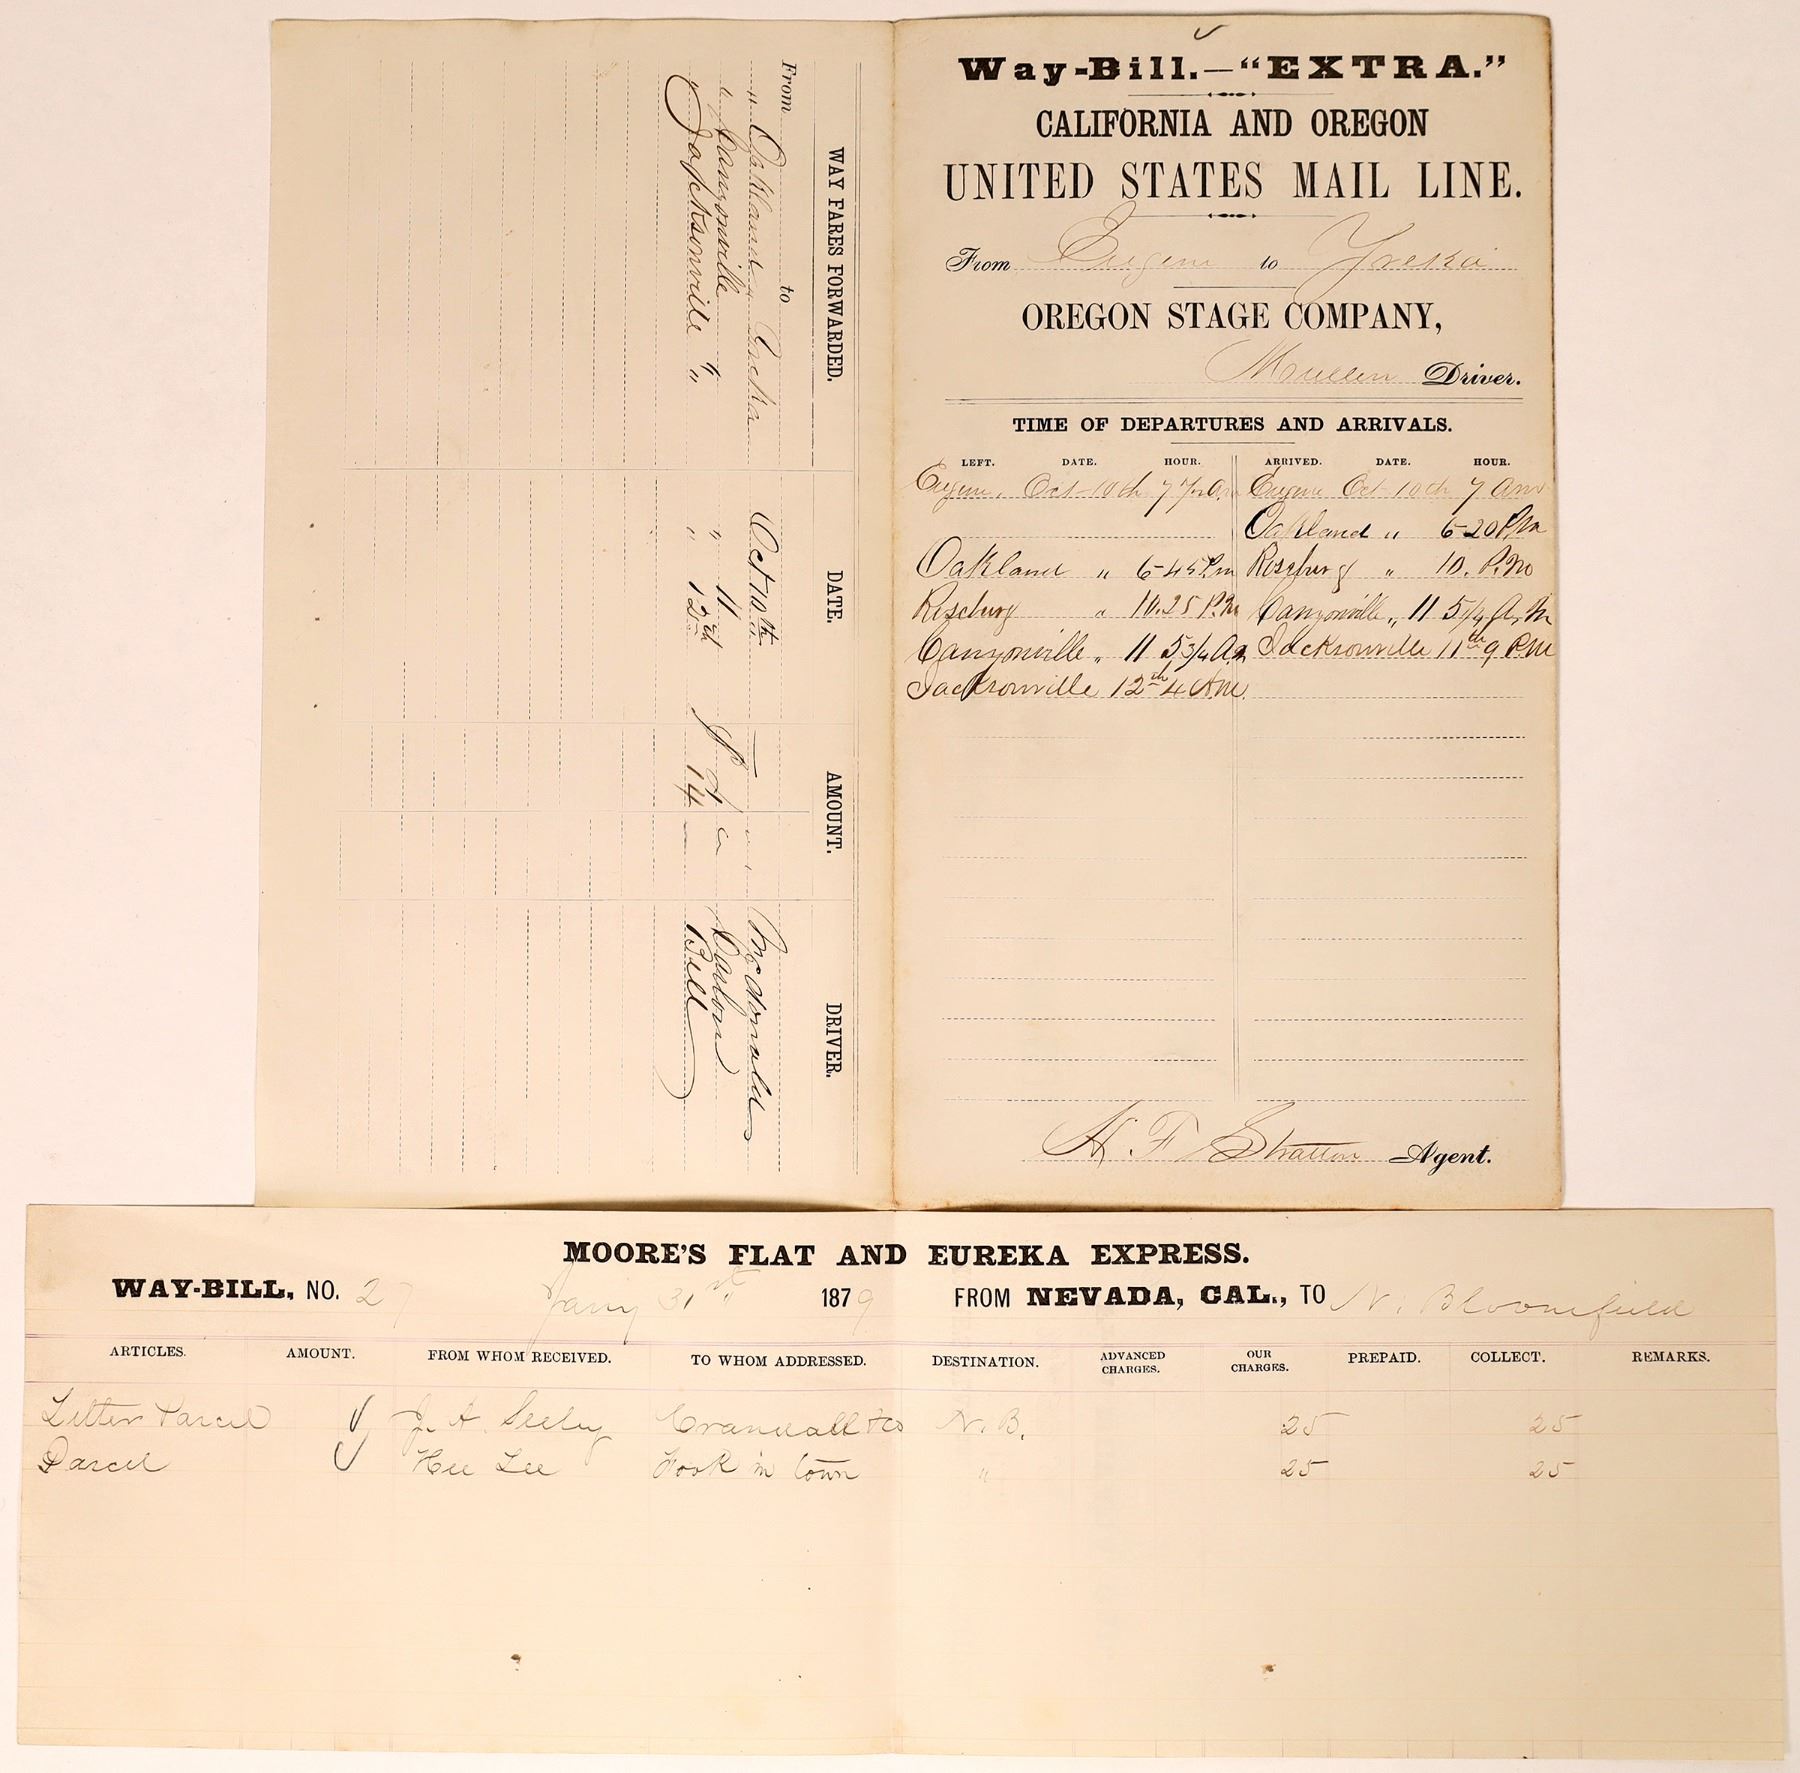 Way-Bill.—"EXTRA."
CALIFORNIA AND OREGON
UNITED STATES MAIL LINE.
From Eugene to Yreka
OREGON STAGE COMPANY,
Mullen Driver.
TIME OF DEPARTURES AND ARRIVALS.
LEFT. DATE. HOUR. ARRIVED. DATE. HOUR.
Eugene. Oct 10th 7 Eugene Oct 10th 7 Am
Oakland " 6-20 P.M
Oakland " 6-45 P.m Roseburg " 10. P.M
Roseburg " 10.25 P.M Canyonville " 11 5 1/4 A.M
Canyonville " 11 5 3/4 A.m Jacksonville 11th 9 P.M
Jacksonville 12th 4 A.M.
H. F. Stratton Agent.
WAY FARES FORWARDED. DATE. AMOUNT. DRIVER.
From to
" Oakland " Yreka Oct 10th — " " McDonald
" Canyonville " " 11 "
" Jacksonville " " 12th 14 — Bill
MOORE'S FLAT AND EUREKA EXPRESS.
WAY-BILL, NO. 27 Jany 31st 1879 FROM NEVADA, CAL., TO N. Bloomfield
ARTICLES. AMOUNT. FROM WHOM RECEIVED. TO WHOM ADDRESSED. DESTINATION. ADVANCED CHARGES. OUR CHARGES. PREPAID. COLLECT. REMARKS.
Letter Parcel J. A. Seeley Crandall & Co N. B. 25 25
Parcel Hee Lee Fook in town " 25 25